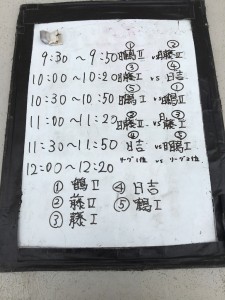 ① ②
9:30～9:50 鶴Ⅱ vs 藤Ⅱ
③ ④
10:00～10:20 藤Ⅰ vs 日吉
① ⑤
10:30～10:50 鶴Ⅱ vs 鶴Ⅰ
② ③
11:00～11:20 藤Ⅱ vs 藤Ⅰ
④ ⑤
11:30～11:50 日吉 vs 鶴Ⅰ
12:00～12:20 リーグ1位 vs リーグ2位
① 鶴Ⅱ ④ 日吉
② 藤Ⅱ ⑤ 鶴Ⅰ
③ 藤Ⅰ